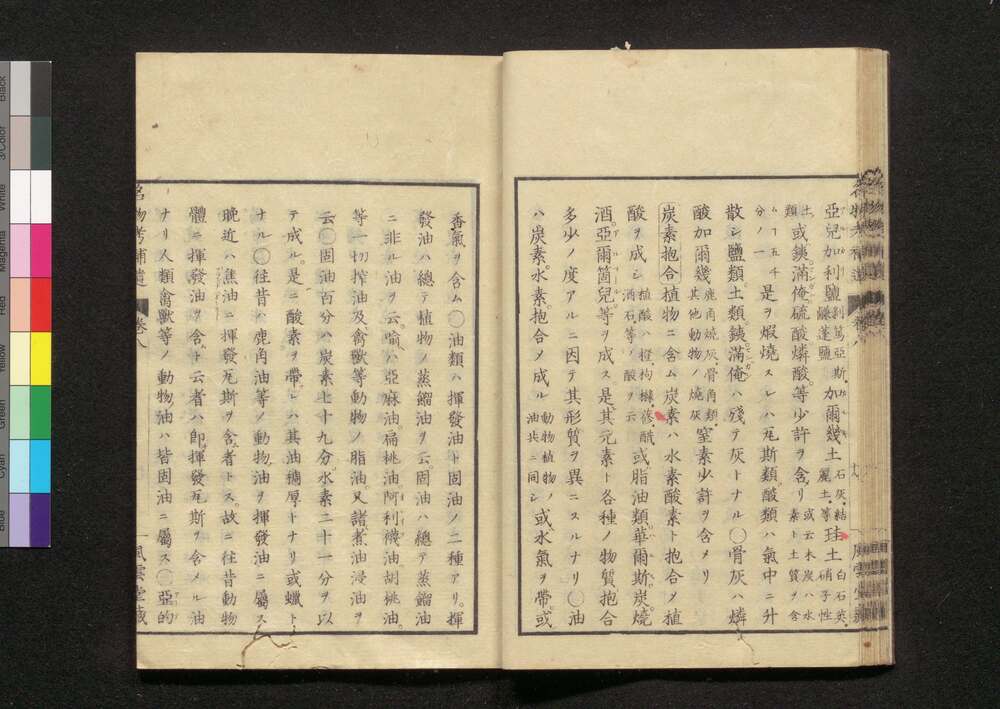 亞兒加利鹽 剥篤亞斯 鹻蓬鹽 加爾幾土 石灰 結麗土等 珪土 白石英 硝子性
土 或銕滿俺硫酸燐酸等少許ヲ含リ 或云木炭ハ水
類 素ト土質ヲ含
ム丁五千
分ノ一 是ヲ煆燒スレハ瓦斯類酸類ハ氣中ニ升
散シ鹽類土類銕滿俺ハ殘テ灰トナル〇骨灰ハ燐
酸加爾幾 鹿角燒灰骨角類 其他動物ノ燒灰 窒素少許ヲ含メリ
炭素抱合 植物ニ含ム炭素ハ水素酸素ト抱合メ植
酸ヲ成シ 植酸ハ橙枸櫞葠醋 酒石等ノ酸ヲ云 或脂油類華爾斯炭燒
酒亞爾箇兒等ヲ成ス是其元素ト各種ノ物質抱合
多少ノ度アルニ因テ其形質ヲ異ニスルナリ〇油
ハ炭素水素抱合メ成ル 動物植物ノ 油共ニ同シ 或水氣ヲ帶或
香氣ヲ含ム〇油類ハ揮發油ト固油ノ二種アリ揮
發油ハ總テ植物ノ蒸餾油ヲ云固油ハ總テ蒸餾油
ニ非ル油ヲ云喩ハ亞麻油扁桃油阿利襪油胡桃油
等一切搾油及禽獸等動物ノ脂油又諸煮油浸油ヲ
云〇固油百分ハ炭素七十九分水素二十一分ヲ以
テ成ル是ニ酸素ヲ帶レハ其油稠厚トナリ或蠟ト
ナル〇往昔ハ鹿角油等ノ動物油ヲ揮發油ニ屬ス
晩近ハ焦油ニ揮發瓦斯ヲ含者トス故ニ往昔動物
體ニ揮發油ヲ含ト云者ハ即揮發瓦斯ヲ含メル油
ナリ人類禽獸等ノ動物油ハ皆固油ニ屬ス〇亞的
名物考補遺 卷八 風雲堂藏